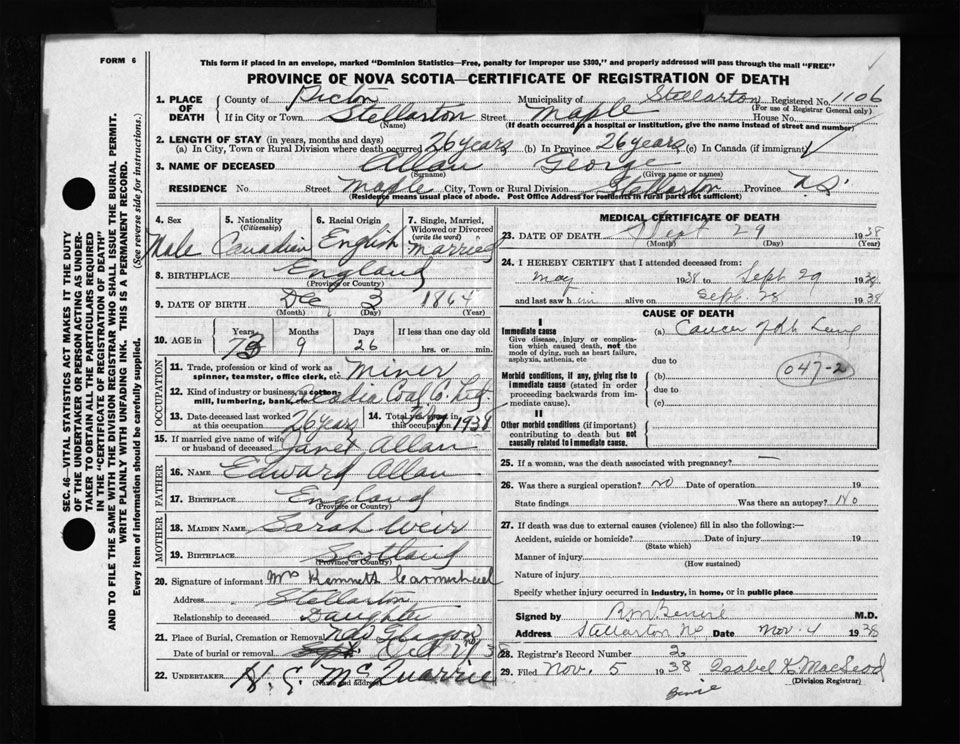 FORM 6
This form if placed in an envelope, marked "Dominion Statistics—Free, penalty for improper use $300," and properly addressed will pass through the mail "FREE"
PROVINCE OF NOVA SCOTIA—CERTIFICATE OF REGISTRATION OF DEATH
1. PLACE OF DEATH
County of Pictou Municipality of Stellarton Registered No. 1106
(For use of Registrar General only)
If in City or Town Stellarton Street Maple House No.
(Name) (If death occurred in a hospital or institution, give the name instead of street and number)
2. LENGTH OF STAY (in years, months and days)
(a) In City, Town or Rural Division where death occurred 26 years (b) In Province 26 years (c) In Canada (if immigrant)
3. NAME OF DECEASED Allan George
(Surname) (Given name or names)
RESIDENCE No. Street Maple City, Town or Rural Division Stellarton Province N.S.
(Residence means usual place of abode. Post Office Address for residents in rural parts not sufficient)
4. Sex Male
5. Nationality (Citizenship) Canadian
6. Racial Origin English
7. Single, Married, Widowed or Divorced (write the word) Married
8. BIRTHPLACE England
(Province or Country)
9. DATE OF BIRTH Dec 3 1864
(Month) (Day) (Year)
10. AGE in Years Months Days If less than one day old
73 9 26 hrs. or min.
OCCUPATION
11. Trade, profession or kind of work as spinner, teamster, office clerk, etc. Miner
12. Kind of industry or business, as cotton mill, lumbering, bank, etc. Acadia Coal Co. Ltd.
13. Date deceased last worked at this occupation 26 years
14. Total years spent in this occupation 1938
15. If married give name of wife or husband of deceased Janet Allan
FATHER
16. NAME Edward Allan
17. BIRTHPLACE England
(Province or Country)
MOTHER
18. MAIDEN NAME Sarah Weir
19. BIRTHPLACE Scotland
(Province or Country)
20. Signature of informant Mrs Kenneth Carmichael
Address Stellarton
Relationship to deceased Daughter
21. Place of Burial, Cremation or Removal New Glasgow
Date of burial or removal Oct 2nd 1938
22. UNDERTAKER H. G. McQuarrie
(Name and address)
MEDICAL CERTIFICATE OF DEATH
23. DATE OF DEATH Sept 29 1938
(Month) (Day) (Year)
24. I HEREBY CERTIFY that I attended deceased from:
May 1938 to Sept. 29 1938
and last saw him alive on Sept. 28 1938
CAUSE OF DEATH
I
Immediate cause (a) Cancer of Lung
Give disease, injury or complication which caused death, not the mode of dying, such as heart failure, asphyxia, asthenia, etc
due to
Morbid conditions, if any, giving rise to immediate cause (stated in order proceeding backwards from immediate cause).
(b) 047-2
due to
(c)
II
Other morbid conditions (if important) contributing to death but not causally related to immediate cause.
25. If a woman, was the death associated with pregnancy? —
26. Was there a surgical operation? NO Date of operation 19
State findings Was there an autopsy? No
27. If death was due to external causes (violence) fill in also the following:—
Accident, suicide or homicide? Date of injury 19
(State which)
Manner of injury
(How sustained)
Nature of injury
Specify whether injury occurred in industry, in home, or in public place
Signed by M.D.
Address Stellarton NS Date Nov. 4 1938
28. Registrar's Record Number 2
29. Filed Nov. 5 1938 Isabel K. MacLeod
(Division Registrar)
SEC. 46—VITAL STATISTICS ACT MAKES IT THE DUTY
OF THE UNDERTAKER OR PERSON ACTING AS UNDERTAKER TO OBTAIN ALL THE PARTICULARS REQUIRED
IN THE "CERTIFICATE OF REGISTRATION OF DEATH"
AND TO FILE THE SAME WITH THE DIVISION REGISTRAR WHO SHALL ISSUE THE BURIAL PERMIT.
WRITE PLAINLY WITH UNFADING INK. THIS IS A PERMANENT RECORD.
Every item of information should be carefully supplied. (See reverse side for instructions.)